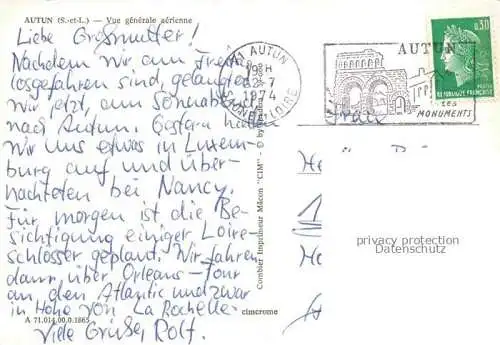 AUTUN (S.-et-L.) — Vue générale aérienne
Liebe Großmutter!
Nachdem wir am Freitag
losgefahren sind, gelangten
wir jetzt am Sonnabend
nach Autun. Gestern hielten
wir uns etwas in Luxem-
burg auf und über-
nachteten bei Nancy.
Für morgen ist die Be-
sichtigung einiger Loire-
schlösser geplant. Wir fahren
dann über Orleans - Tour
an den Atlantic und zwar
in Höhe von La Rochelle.
A 71.014.00.0.1865
Viele Grüße, Rolf.
Combier Imprimeur Mâcon "CIM"
cimcrome
71 AUTUN
22-7
1974
SAONE ET LOIRE
AUTUN
SES
MONUMENTS
0,30
REPUBLIQUE FRANÇAISE
Frau
privacy protection
Datenschutz